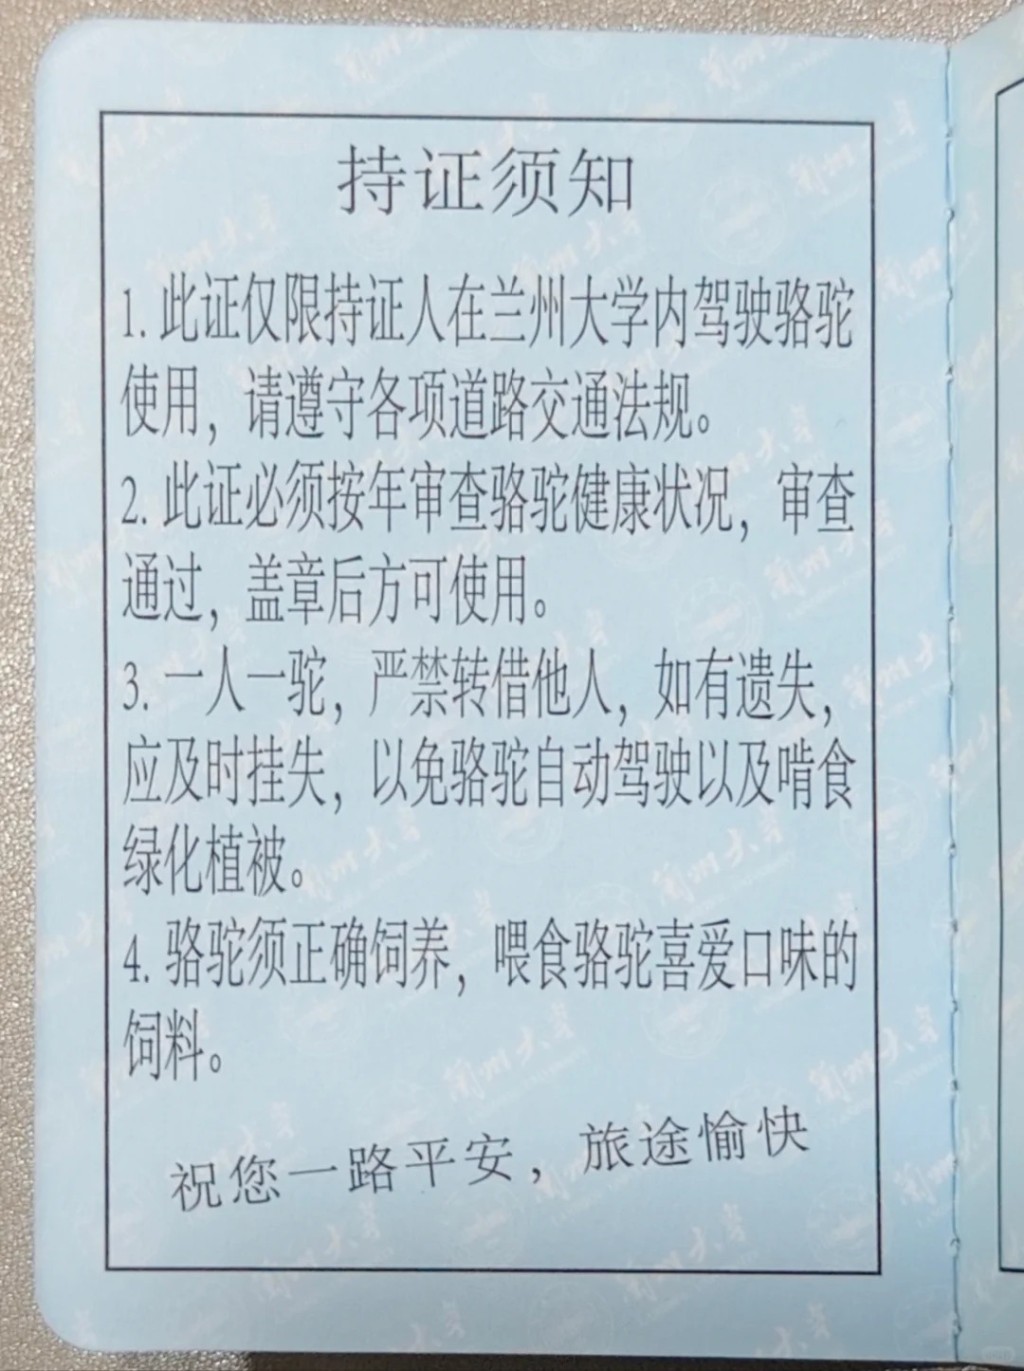 持证须知
1. 此证仅限持证人在兰州大学内驾驶骆驼
使用，请遵守各项道路交通法规。
2. 此证必须按年审查骆驼健康状况，审查
通过，盖章后方可使用。
3. 一人一驼，严禁转借他人，如有遗失，
应及时挂失，以免骆驼自动驾驶以及啃食
绿化植被。
4. 骆驼须正确饲养，喂食骆驼喜爱口味的
饲料。
祝您一路平安，旅途愉快